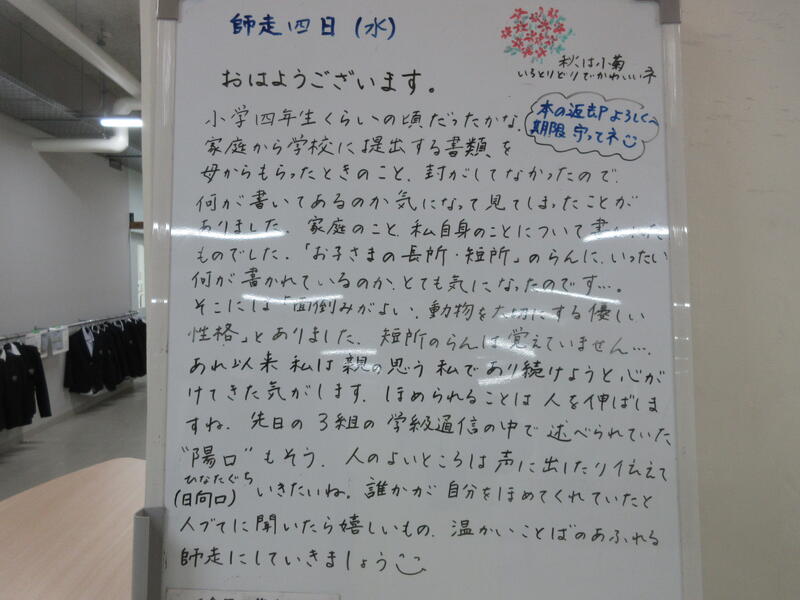 師走四日(水)
秋は小菊
いろとりどりでかわいいネ
おはようございます。
本の返却よろしく
期限守ってネ
小学四年生くらいの頃だったかな。
家庭から学校に提出する書類を
母からもらったときのこと、封がしてなかったので、
何が書いてあるのか気になって見てしまったことが
ありました。家庭のこと、私自身のことについて
ものでした。「お子さまの長所・短所」のらんに、いったい
何が書かれているのか、とても気になったのです…。
そこには「面倒みがよい、動物を大切にする優しい
性格」とありました。短所のらんは覚えていません…。
あれ以来私は親の思う私であり続けようと心が
けてきた気がします。ほめられることは人を伸ばしま
すね。先日の3組の学級通信の中で述べられていた
"陽口"もそう。人のよいところは声に出したり伝えて
ひなたぐち
(日向口)いきたいね。誰かが自分をほめてくれていたと
人づてに聞いたら嬉しいもの。温かいことばのあふれる
師走にしていきましょう